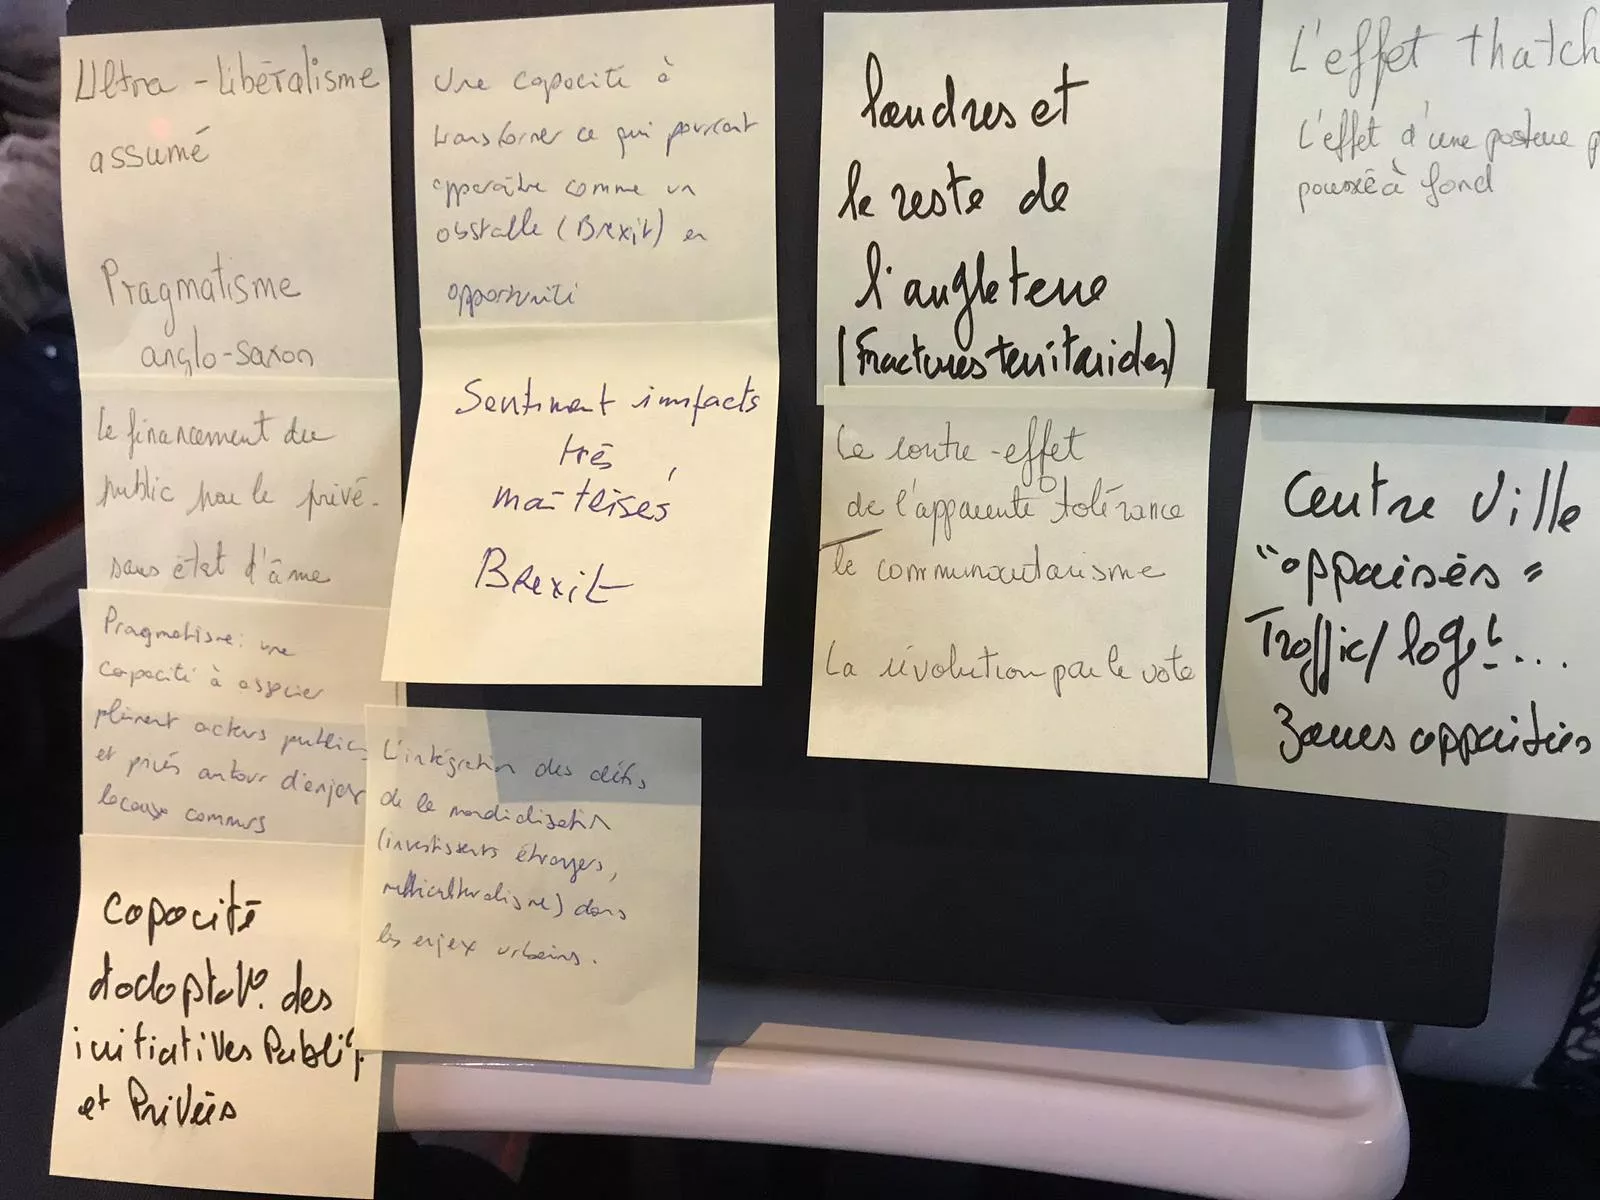 Ultra-libéralisme
assumé
Pragmatisme
anglo-saxon
Le financement du
public par le privé.
sans état d'âme
Pragmatisme : une
capacité à associer
pleinement acteurs publics
et privés autour d'enjeux
locaux communs
Capacité
d'adaptat°. des
initiatives Publiq.
et Privées
Une capacité à
transformer ce qui pourrait
apparaître comme un
obstacle (Brexit) en
opportunité
Sentiment impacts
très
maîtrisés
Brexit
L'intégration des défis
de la mondialisation
(investisseurs étrangers,
multiculturalisme) dans
les enjeux urbains.
Londres et
le reste de
l'angleterre
(Fractures territoriales)
Le contre-effet
de l'apparente tolérance
le communautarisme
La révolution par le vote
L'effet thatch
L'effet d'une posture p
poussée à fond
Centre Ville
"appaisés"
Traffic/logt....
Zones appaisées